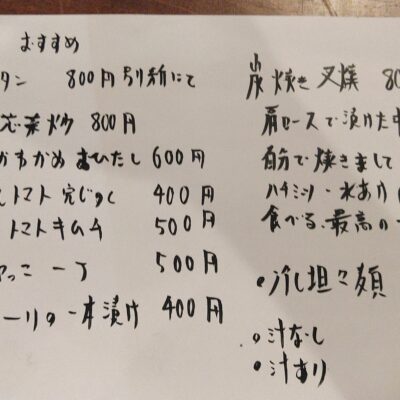 おすすめ
タン 800円 別紙にて
芯菜炒 800円
かわかめ おひたし 600円
トマト 完じゅく 400円
トマトキムチ 500円
やっこ 一丁 500円
ーリの一本漬け 400円
炭焼き叉焼 80
肩ロースで漬けた
で焼きまして
ハチミツ・水あめ
食べる、最高の
・冷し坦々麺
・汁なし
・汁あり